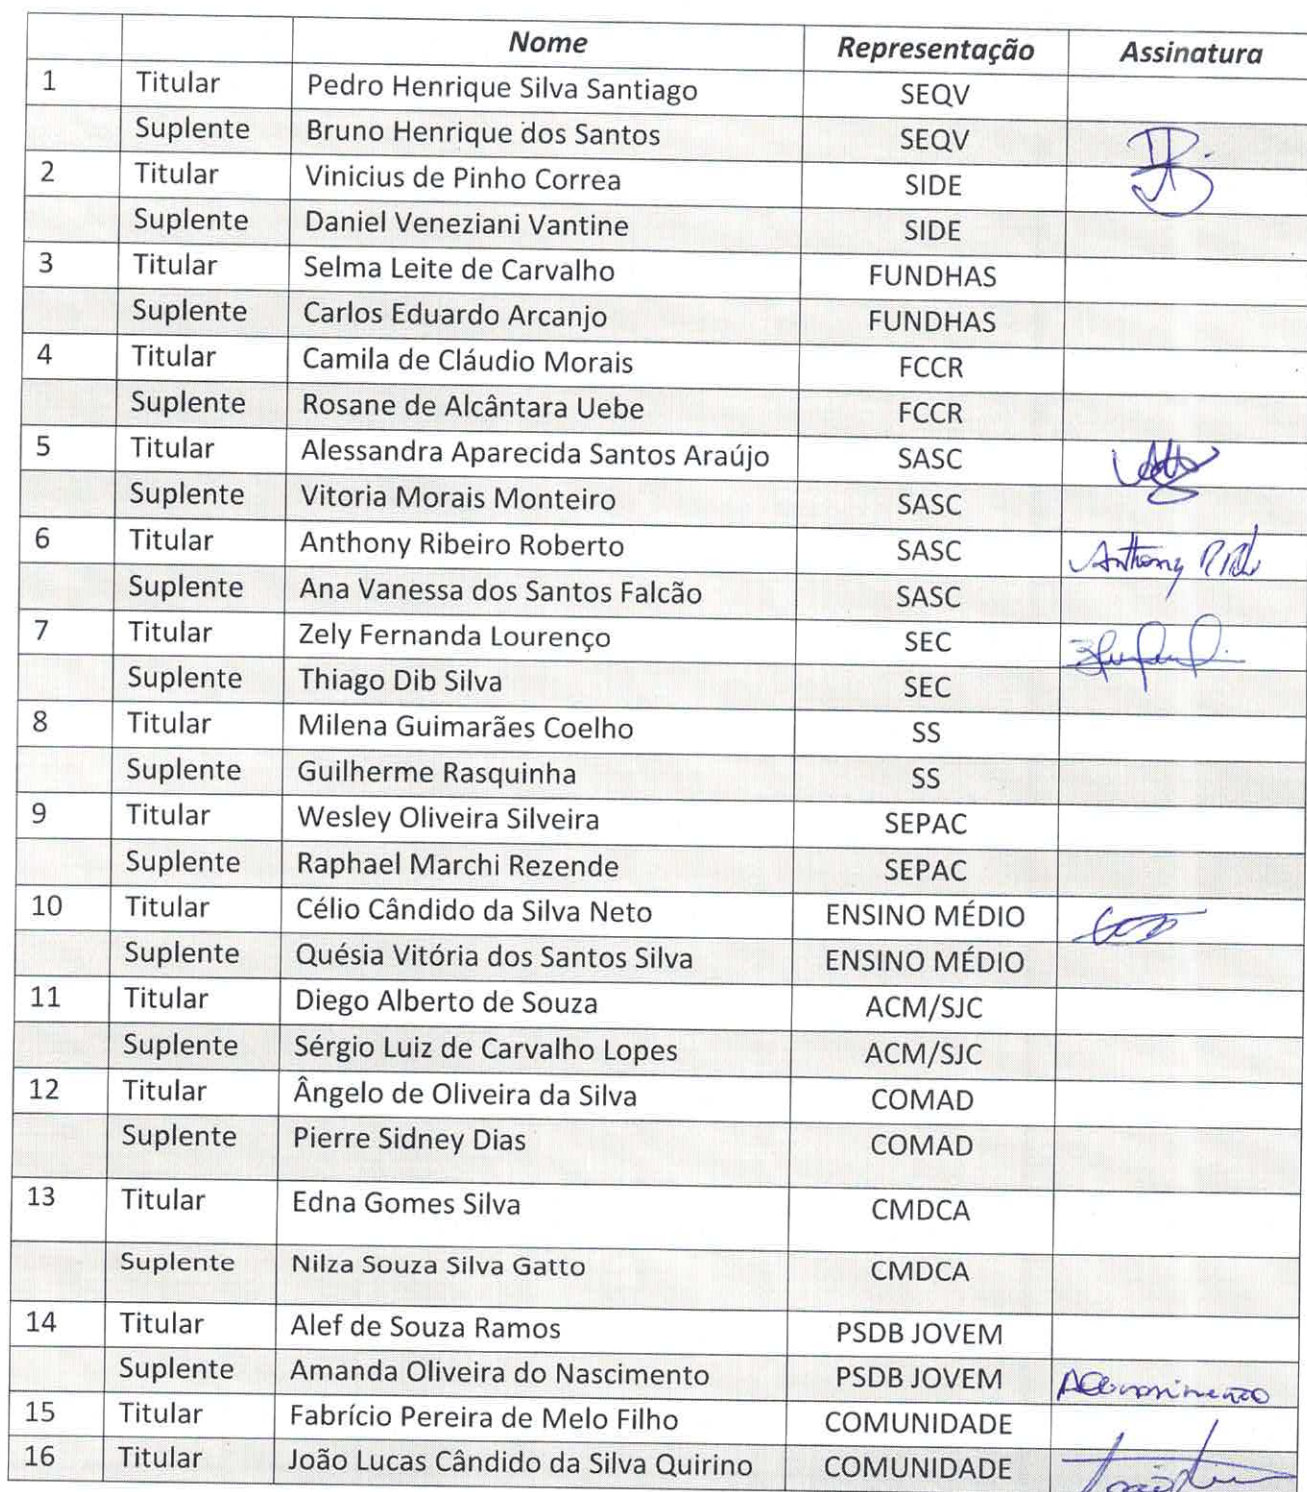 Nome Representação Assinatura
1 Titular Pedro Henrique Silva Santiago SEQV
Suplente Bruno Henrique dos Santos SEQV
2 Titular Vinicius de Pinho Correa SIDE
Suplente Daniel Veneziani Vantine SIDE
3 Titular Selma Leite de Carvalho FUNDHAS
Suplente Carlos Eduardo Arcanjo FUNDHAS
4 Titular Camila de Cláudio Morais FCCR
Suplente Rosane de Alcântara Uebe FCCR
5 Titular Alessandra Aparecida Santos Araújo SASC
Suplente Vitoria Morais Monteiro SASC
6 Titular Anthony Ribeiro Roberto SASC Anthony
Suplente Ana Vanessa dos Santos Falcão SASC
7 Titular Zely Fernanda Lourenço SEC
Suplente Thiago Dib Silva SEC
8 Titular Milena Guimarães Coelho SS
Suplente Guilherme Rasquinha SS
9 Titular Wesley Oliveira Silveira SEPAC
Suplente Raphael Marchi Rezende SEPAC
10 Titular Célio Cândido da Silva Neto ENSINO MÉDIO
Suplente Quésia Vitória dos Santos Silva ENSINO MÉDIO
11 Titular Diego Alberto de Souza ACM/SJC
Suplente Sérgio Luiz de Carvalho Lopes ACM/SJC
12 Titular Ângelo de Oliveira da Silva COMAD
Suplente Pierre Sidney Dias COMAD
13 Titular Edna Gomes Silva CMDCA
Suplente Nilza Souza Silva Gatto CMDCA
14 Titular Alef de Souza Ramos PSDB JOVEM
Suplente Amanda Oliveira do Nascimento PSDB JOVEM
15 Titular Fabrício Pereira de Melo Filho COMUNIDADE
16 Titular João Lucas Cândido da Silva Quirino COMUNIDADE